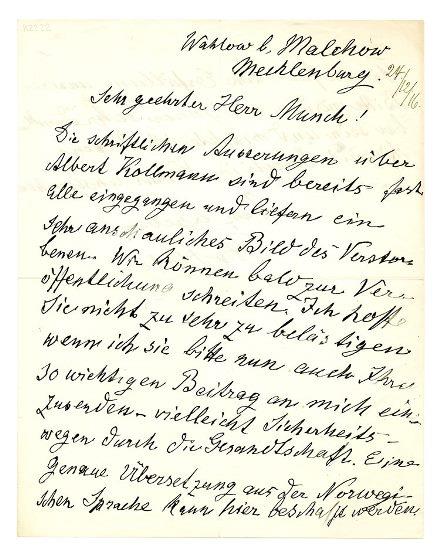 K2222
Wahlow b. Malchow
Mecklenburg. 24/12/16
Sehr geehrter Herr Munch!
Die schriftlichen Äusserungen über
Albert Kollmann sind bereits fast
alle eingegangen und liefern ein
sehr anschauliches Bild des Verstor-
benen. Wir können bald zur Ver-
öffentlichung schreiten. Ich hoffe
Sie nicht zu sehr zu belästigen
wenn ich sie bitte nun auch Ihren
so wichtigen Beitrag an mich ein-
zusenden – vielleicht Sicherheits-
wegen durch die Gesandtschaft. Eine
genaue Übersetzung aus der Norwegi-
schen Sprache kann hier beschafft werden